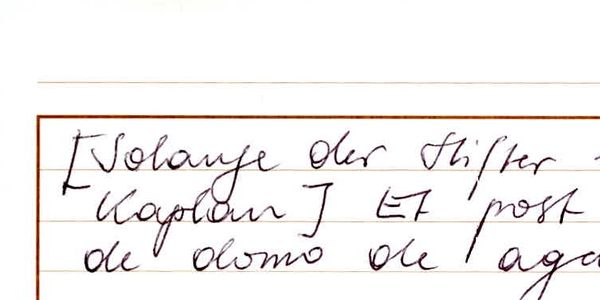 [Solange der Stifter -
Kaplan] Et post
de domo de aga